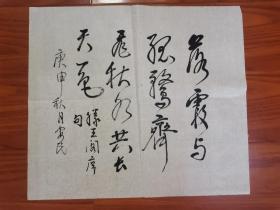 落霞与
孤鹜齐
飞秋水共长
天一色 滕王阁序
句
庚申秋月安民